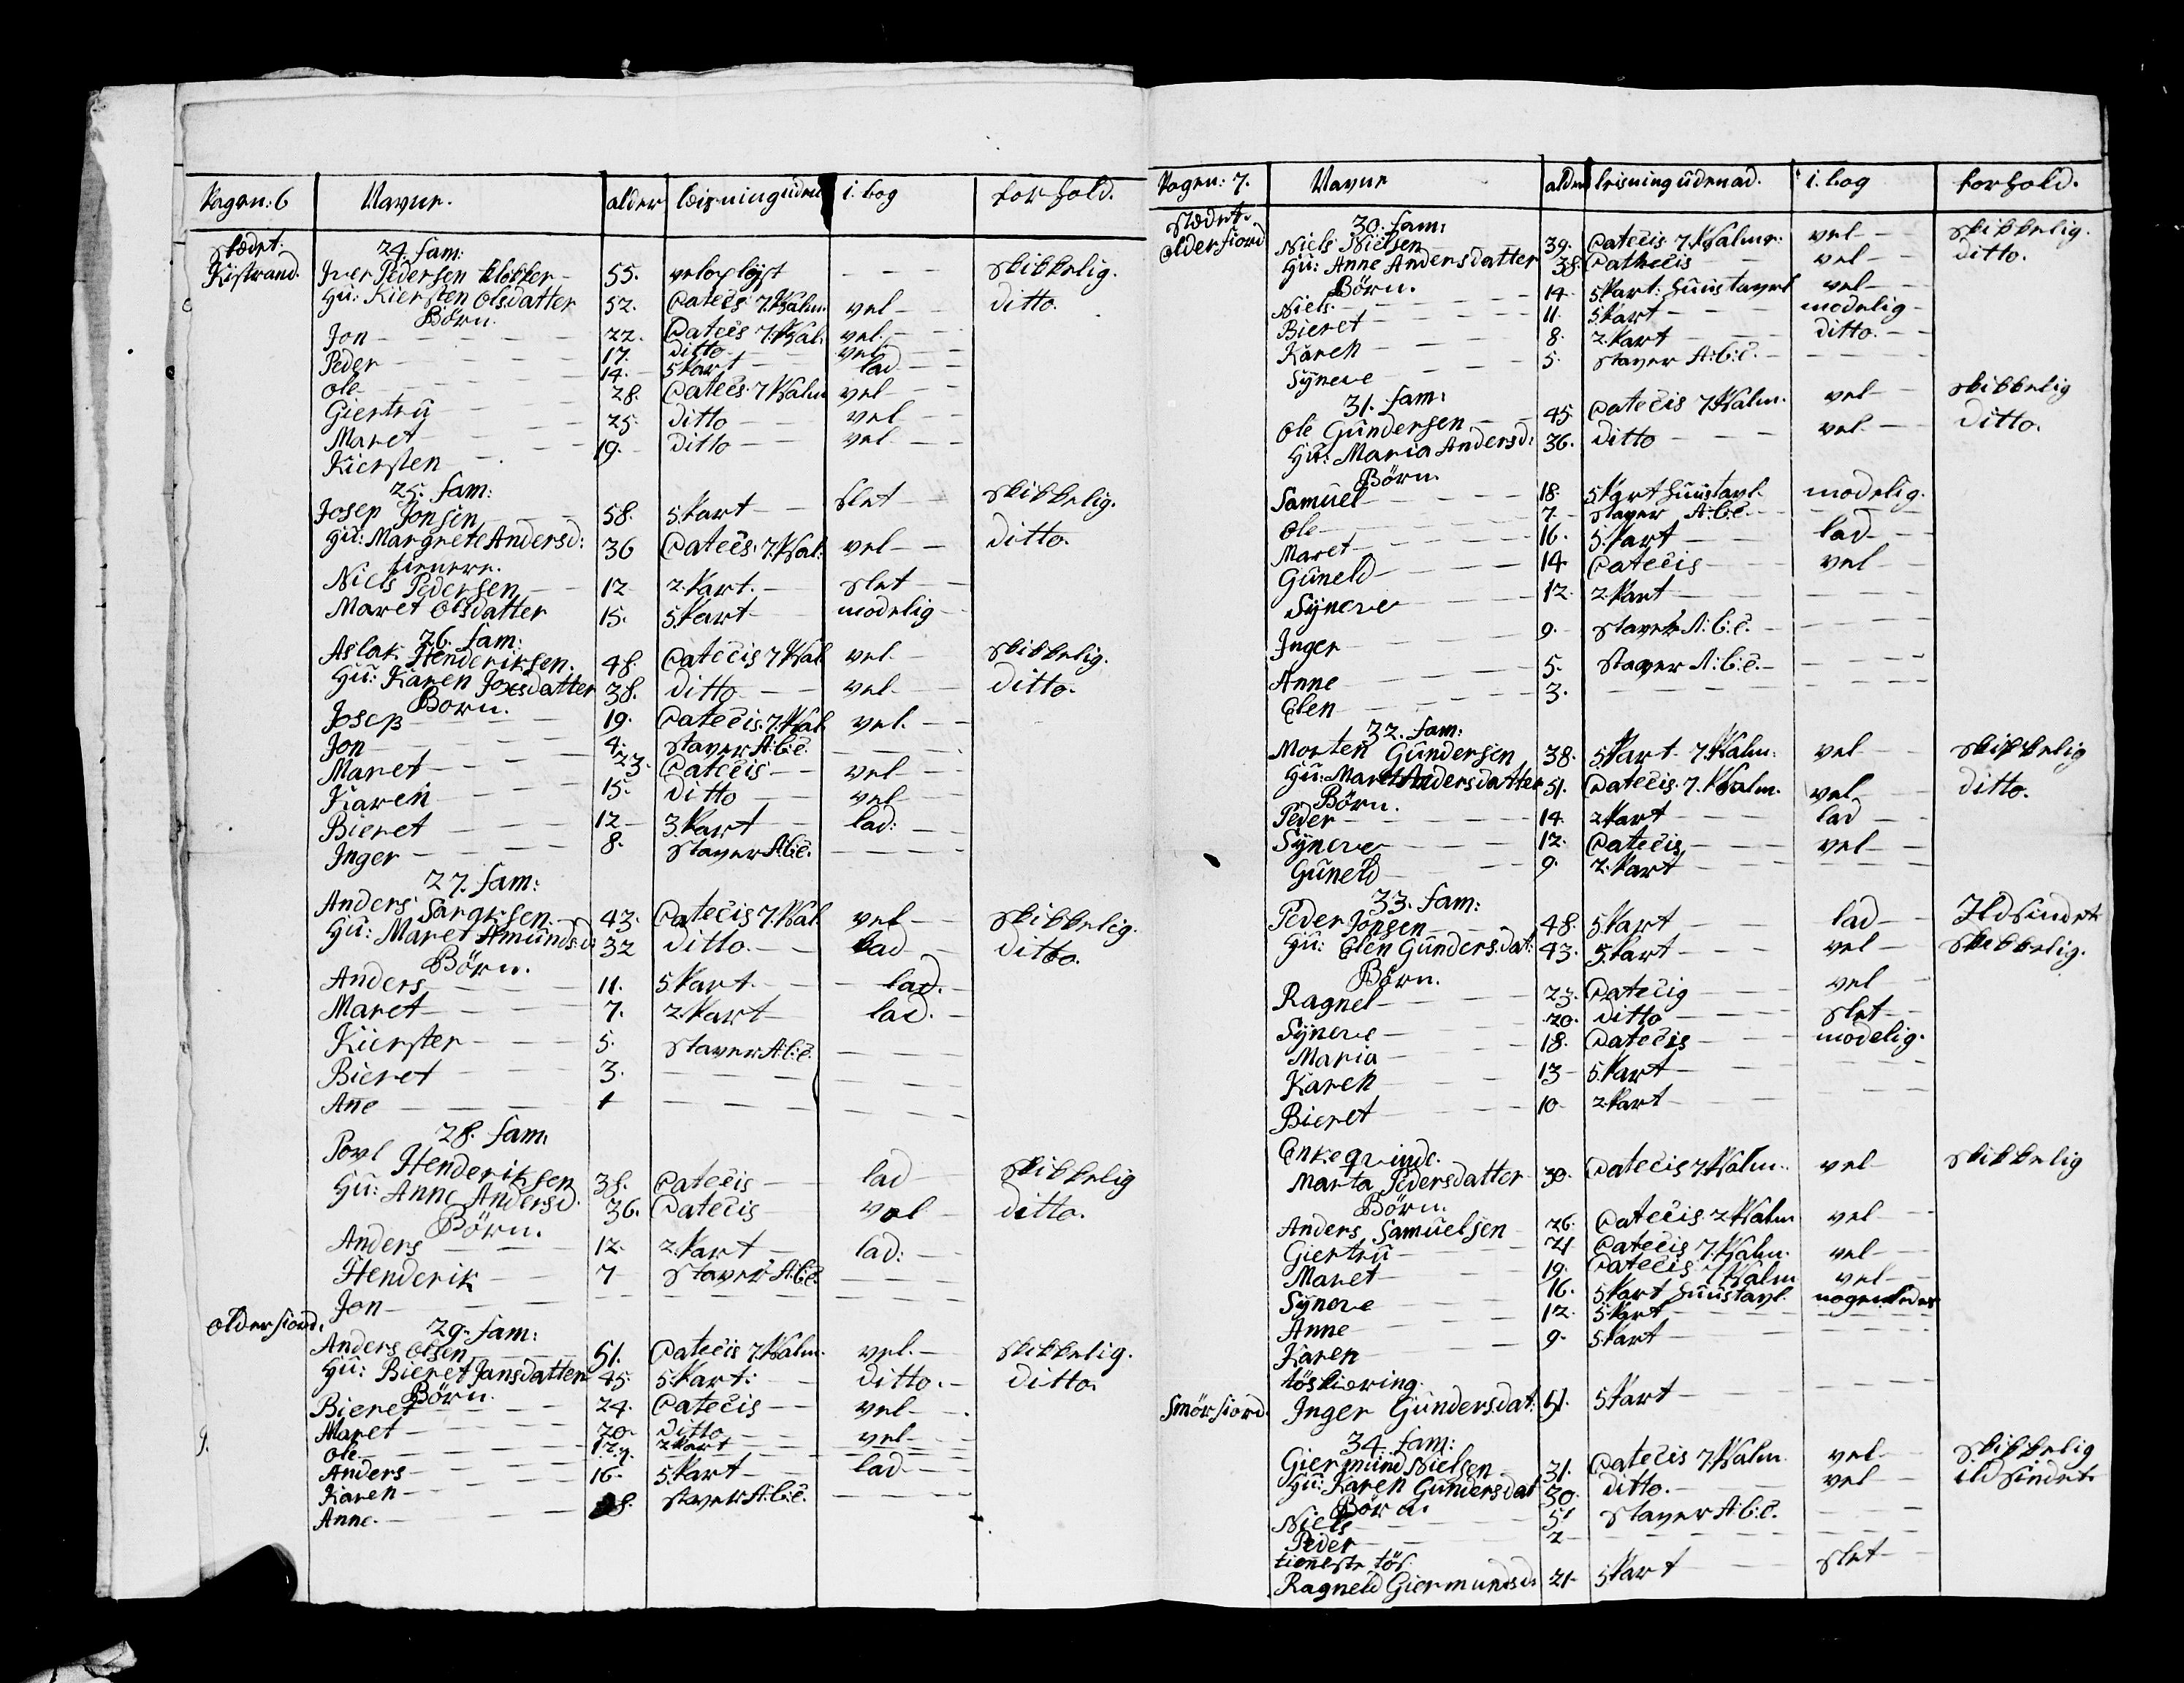 Pagen: 6 Navne. alder læisning uden i. bog forhold.
stædet: 24. fam:
Kistrand. Iver Pedersen klokker 55. veloplöjst skikkelig.
Hu: Kiersten olsdatter 52. Catecis: 7. Psalm. vel ditto.
Börn.
Jon 22. Catecis 7. Psal. vel.
Peder 17. ditto vel
ole 14. 5 Part lad
Giertru 28. Catecis: 7 Psalm vel
Maret 25. ditto vel
Kiersten 19. ditto vel
25. fam:
Josep Jonsen 58. 5 Part slet skikkelig.
Hu: Margrete Andersd: 36 Catecis: 7. Psal. vel ditto.
tienere.
Niels Pedersen 12 2. Part. slet
Maret olsdatter 15. 5 Part modelig
26. fam:
Aslak Henderiksen. 48. Catecis 7 Psal vel skikkelig.
Hu: Karen Joxsdatter 38. ditto vel ditto.
Born.
Josep 19. Catecis. 7. Psal. vel.
Jon 4. staver A:b:c.
Maret 23. Catecis vel
Karen 15. ditto vel
Bieret 12 3. Part lad:
Inger 8. staver A:b:c.
27. fam:
Anders Saraksen 43. Catecis 7. Psal. vel skikkelig.
Hu: Maret Amunds:d: 32 ditto. lad ditto.
Börn.
Anders 11. 5 Part. lad.
Maret 7. 2. Part lad.
Kierster 5. staver A:b:c.
Bieret 3.
Ane 1
28. fam:
Povl Henderiksen 38. Catecis lad skikkelig
Hu: Anne Andersd. 36. Catecis vel ditto.
Börn.
Anders 12. 2. Part lad:
Henderik 7 staver A:b:c.
Jon
olderfiord. 29. fam:
Anders olsen 51. Catecis 7 Psalm. vel. skikkelig.
Hu: Bieret Jansdatter 45 5. Part: ditto. ditto.
Börn.
Bieret 24. Catecis vel
Maret 20. ditto vel
ole 12. 2 Part
Anders
Karen 16. 5. Part lad
Anne. 8. staver A:b:c.
Pagen: 7. Navne alder leisning udenad. i. bog forhold.
stædet. 30. fam:
olderfiord Niels Nielsen 39. Catecis 7. Psalme: vel skikkelig.
Hu: Anne Andersdatter 38. Cathecis vel ditto.
Börn.
Niels. 14. 5 Part: huustavel vel
Bieret 11. 5 Part modelig
Karen 8. 2 Part ditto.
Syneve 5. staver A:b:c.
31. fam:
ole Gundersen 45 Catecis 7 Psalm. vel skikkelig
Hu: Maria Andersd: 36. ditto vel ditto.
Börn.
Samuel 18. 5 Part huustavl. modelig.
ole 7. staver A:b:c.
Maret 16. 5. Part lad
Guneld 14 Catecis vel
Syneve 12. 2 Part
Inger 9. staver A:b:c.
Anne 5. staver A:b:c.
Elen 3.
32. fam:
Morten Gundersen 38. 5 Part 7 Psalm: vel skikkelig
Hu: Maret Andersdatter 51. Catecis. 7. Psalm. vel ditto.
Börn.
Peder 14. 2 Part lad
Syneve 12. Catecis vel
Guneld 9. 2. Part
33. fam:
Peder Jonsen 48. 5 Part lad Ildsindet
Hu: Elen Gunders.dat: 43. 5 Part vel skikkelig.
Börn.
Ragnel 23. Catecig vel
Syneve 20. ditto slet
Maria 18. Catecis modelig.
Karen 13 5. Part
Bieret 10. 2 Part
Enkeqvinde.
Marta Pedersdatter 30. Catecis 7 Psalm. vel skikkelig
Börn.
Anders Samuelsen 26. Catecis 7 Psalm vel
Giertru 21 Catecis 7. Psalm. vel
Maret 19. Catecis 7 Psalm vel
Syneve 16. 5 Part huustavl. nogenledes
Anne 12. 5 Part
Karen 9. 5 Part
löskiæring.
Smörfiord. Inger Gunders.dat: 51. 5 Part
34. fam:
Giermund Nielsen 31. Catecis 7. Psalm vel skikkelig
Hu: Karen Gundersdat 30. ditto. vel ildsindet.
Börn.
Niels 5. staver A:b:c.
Peder 2
tieneste tös.
Ragneld Giermundsd: 21. 5 Part slet